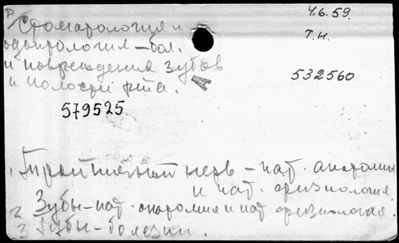 Р/ Стоматология и
4.6.59.
одонтология – бол.
т.н.
и повреждения зубов
532560
и полости рта.
579525
1. Тройничный нерв – пат. анатомия
и пат. физиология.
2. Зубы – пат. анатомия и пат. физиология.
3. Зубы – болезни.